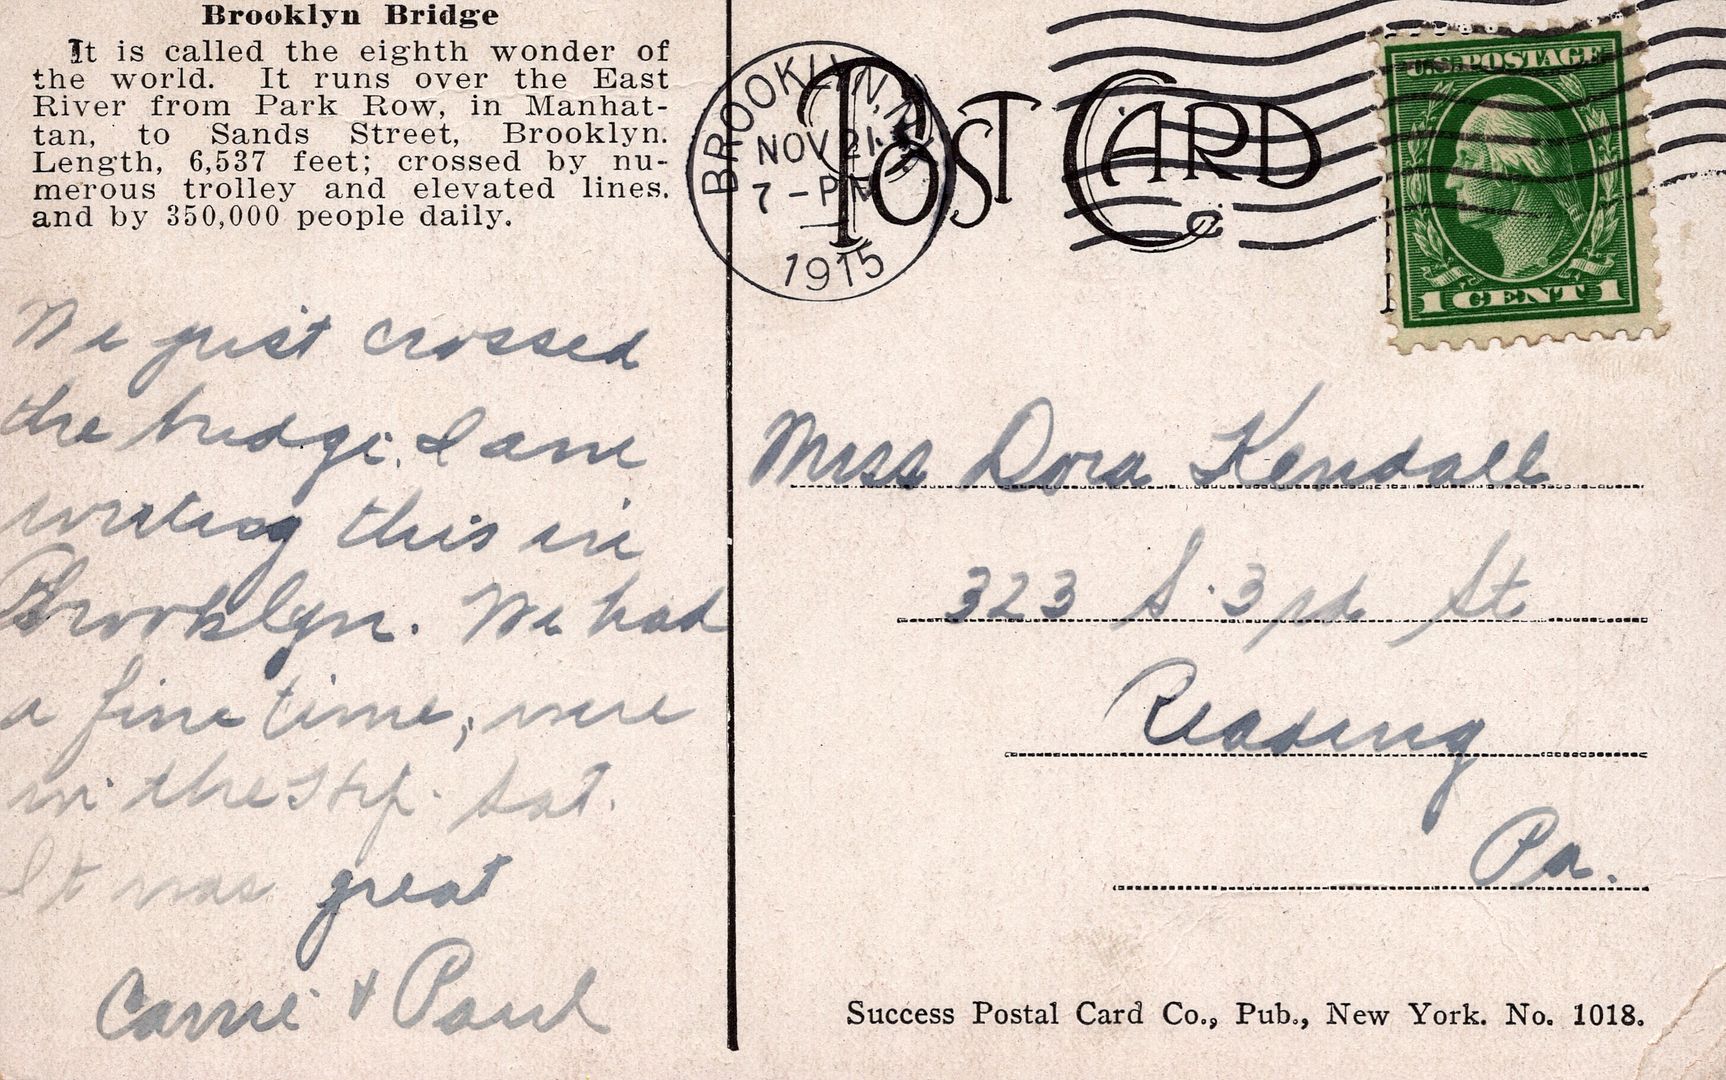 Brooklyn Bridge
It is called the eighth wonder of
the world. It runs over the East
River from Park Row, in Manhat-
tan, to Sands Street, Brooklyn.
Length, 6,537 feet; crossed by nu-
merous trolley and elevated lines.
and by 350,000 people daily.
We just crossed
the bridge. I am
writing this in
Brooklyn. We had
a fine time, were
in the Sat.
It was great
Carrie & Paul
BROOKLYN, N.Y.
NOV 21
7-PM
1915
POST CARD
U.S. POSTAGE
1 CENT 1
Miss Dora Kendall
323 S. 3rd St
Reading
Pa.
Success Postal Card Co., Pub., New York. No. 1018.